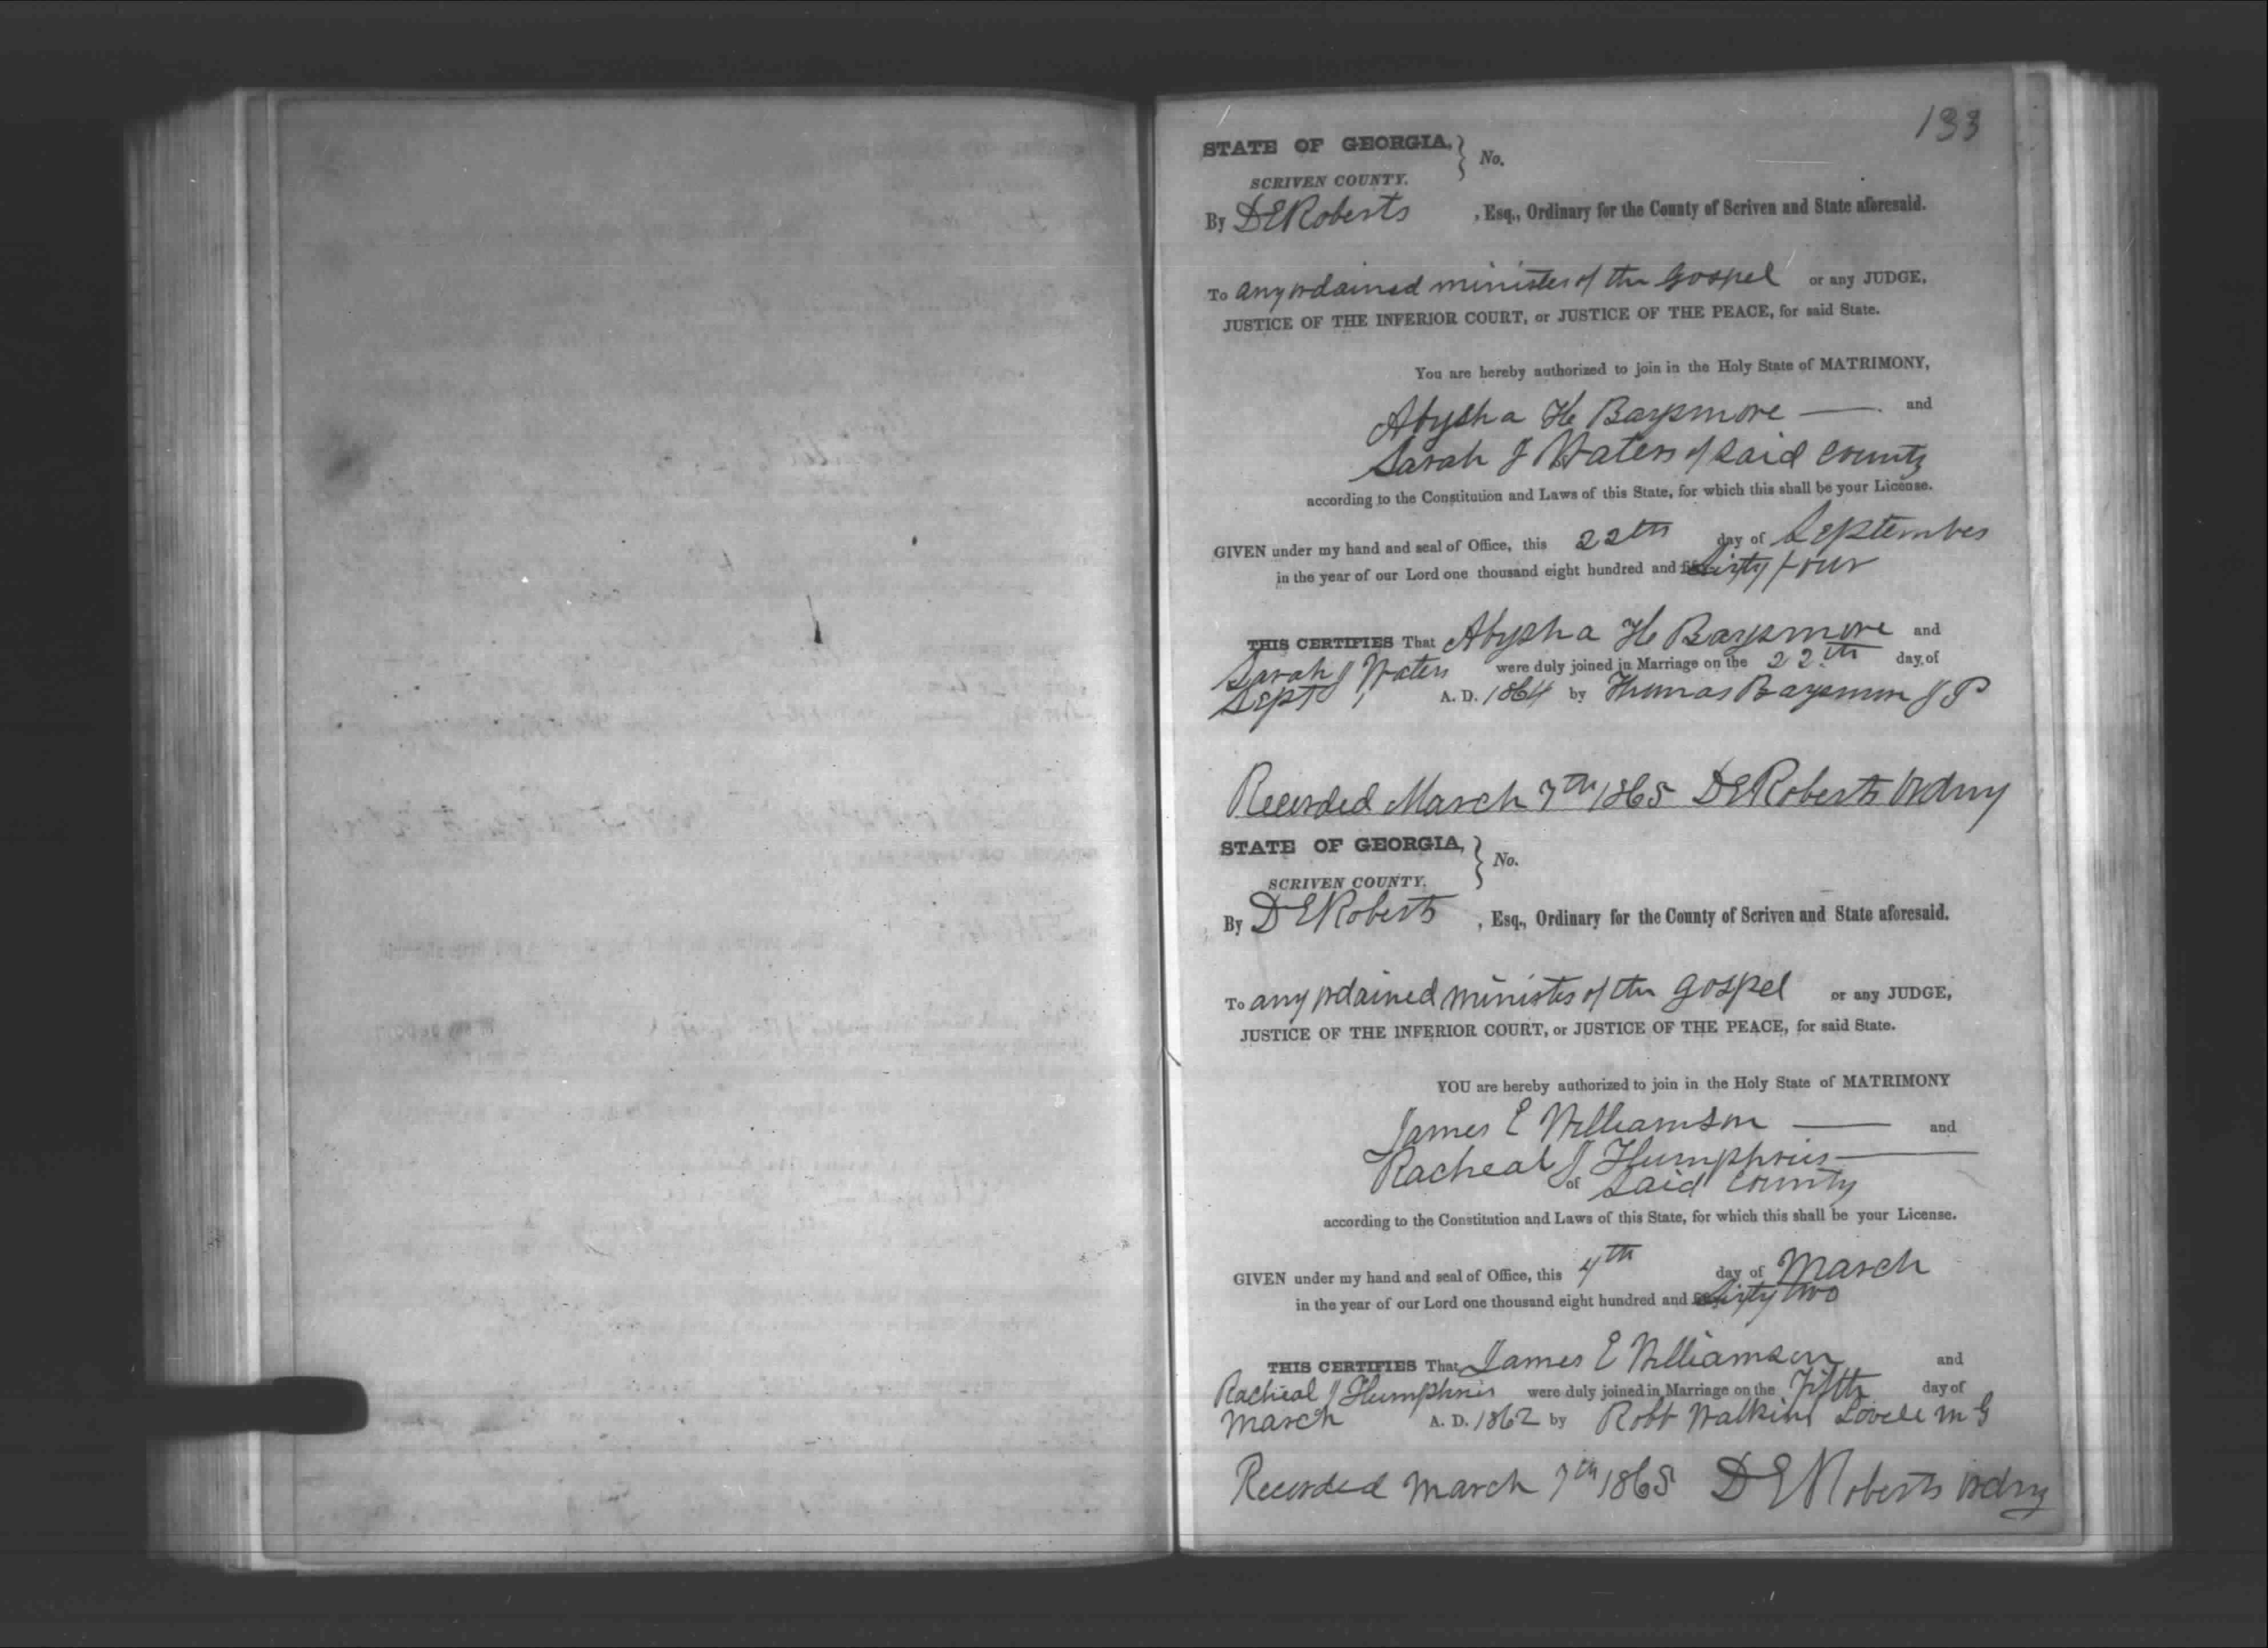 133
STATE OF GEORGIA, } No.
SCRIVEN COUNTY.
By D E Roberts , Esq., Ordinary for the County of Scriven and State aforesaid.
To any ordained minister of the Gospel or any JUDGE,
JUSTICE OF THE INFERIOR COURT, or JUSTICE OF THE PEACE, for said State.
You are hereby authorized to join in the Holy State of MATRIMONY,
Abysha H Baysmore — and
Sarah J Waters of said county
according to the Constitution and Laws of this State, for which this shall be your License.
GIVEN under my hand and seal of Office, this 22th day of September
in the year of our Lord one thousand eight hundred and sixty four
THIS CERTIFIES That Abysha H Baysmore and
Sarah J Waters were duly joined in Marriage on the 22th day of
Sept A. D. 1864 by Thomas Baysmore J P
Recorded March 7th 1865 D E Roberts Ordny
STATE OF GEORGIA, } No.
SCRIVEN COUNTY.
By D E Roberts , Esq., Ordinary for the County of Scriven and State aforesaid.
To any ordained minister of the gospel or any JUDGE,
JUSTICE OF THE INFERIOR COURT, or JUSTICE OF THE PEACE, for said State.
YOU are hereby authorized to join in the Holy State of MATRIMONY
James E Williamson — and
Racheal J Humphries —
of said county
according to the Constitution and Laws of this State, for which this shall be your License.
GIVEN under my hand and seal of Office, this 4th day of March
in the year of our Lord one thousand eight hundred and sixty two
THIS CERTIFIES That James E Williamson and
Racheal J Humphries were duly joined in Marriage on the Fifth day of
March A. D. 1862 by Robt Watkins Lovell M G
Recorded March 7th 1865 D E Roberts Ordny